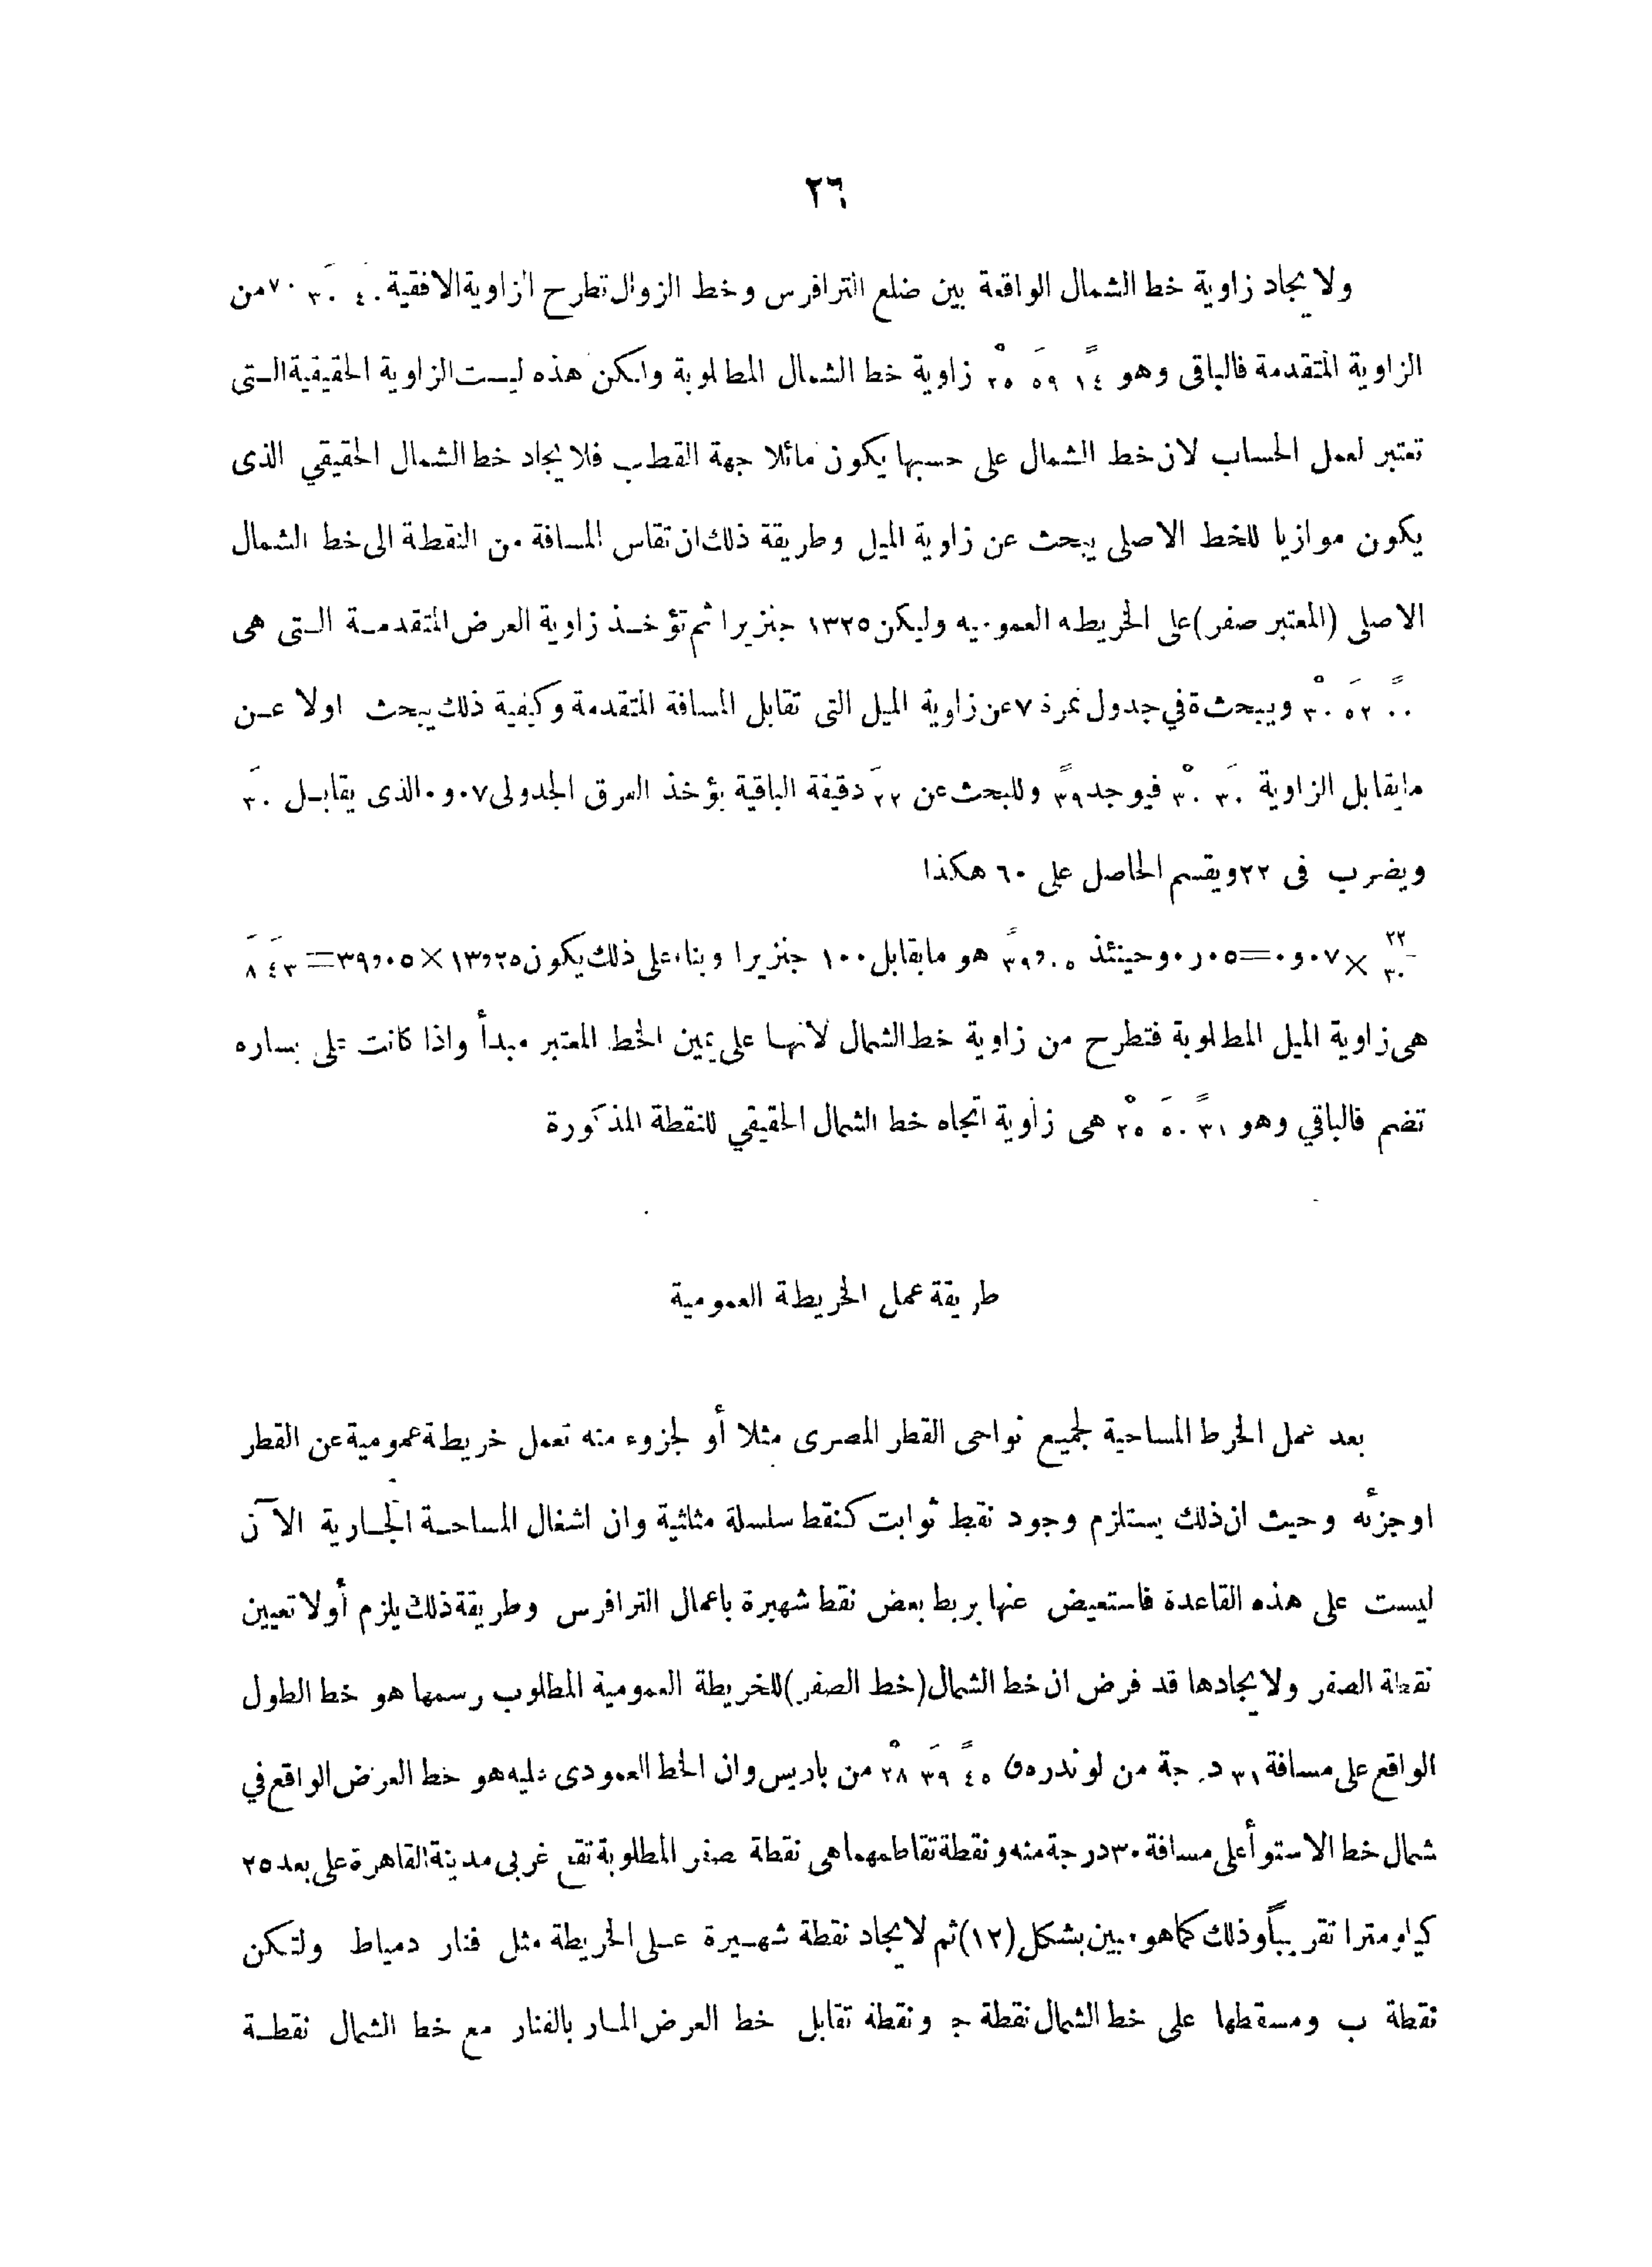 ٢٦
ولايجاد زاوية خط الشمال الواقعة بين ضلع الترافرس وخط الزوال تطرح الزاوية الافقية ٤٠ ٣٠ ٧٠ من
الزاوية المتقدمة فالباقى وهو ١٤ً ٥٩َ ٢٥ْ زاوية خط الشمال المطلوبة ولكن هذه ليست الزاوية الحقيقية التى
تعتبر لعمل الحساب لان خط الشمال على حسبها يكون مائلا جهة القطب فلايجاد خط الشمال الحقيقي الذى
يكون موازيا للخط الاصلى يبحث عن زاوية الميل وطريقة ذلك ان تقاس المسافة من النقطة الى خط الشمال
الاصلى (المعتبر صفر) على الخريطه العموميه وليكن ١٣٢٥ جنزيرا ثم تؤخذ زاوية العرض المتقدمة التى هى
٠٠ً ٥٢َ ٣٠ْ ويبحث ة في جدول نمرذ ٧ عن زاوية الميل التى تقابل المسافة المتقدمة وكيفية ذلك يبحث اولا عن
مايقابل الزاوية ٣٠َ ٣٠ْ فيوجد ٣٩ً وللبحث عن ٢٢َ دقيقة الباقية يؤخذ الفرق الجدولى ٠٧و٠ الذى يقابل ٣٠َ
ويضرب فى ٢٢ ويقسم الحاصل على ٦٠ هكذا
٢٢/٣٠ × ٠٧و٠ = ٠٥ر٠ وحينئذ ٠٥و٣٩ً هو مايقابل ١٠٠ جنزيرا وبناء على ذلك يكون ١٣٫٢٥ × ٣٩٫٠٥ = ٤٣َ ٨َ
هى زاوية الميل المطلوبة فتطرح من زاوية خط الشمال لانها على يمين الخط المعتبر مبدأ واذا كانت على يساره
تضم فالباقي وهو ٣١ً ٥٠َ ٢٥ْ هى زاوية اتجاه خط الشمال الحقيقي للنقطة المذكورة
طريقة عمل الخريطة العمومية
بعد عمل الخرط المساحية لجميع نواحى القطر المصرى مثلا أو لجزوء منه تعمل خريطة عمومية عن القطر
او جزئه وحيث ان ذلك يستلزم وجود نقط ثوابت كنقط سلسلة مثلثية وان اشغال المساحة الجارية الآن
ليست على هذه القاعدة فاستعيض عنها بربط بعض نقط شهيرة باعمال الترافرس وطريقة ذلك يلزم أولا تعيين
نقطة الصفر ولايجادها قد فرض ان خط الشمال (خط الصفر) للخريطة العمومية المطلوب رسمها هو خط الطول
الواقع على مسافة ٣١ درجة من لوندره ٤٥ً ٣٩َ ٢٨ْ من باريس وان الخط العمودى عليه هو خط العرض الواقع في
شمال خط الاستوأ على مسافة ٣٠ درجة منه ونقطة تقاطعهما هى نقطة صفر المطلوبة تقع غربى مدينة القاهرة على بعد ٢٥
كيلومترا تقريباً وذلك كماهو مبين بشكل (١٢) ثم لايجاد نقطة شهيرة على الخريطة مثل فنار دمياط ولتكن
نقطة ب ومسقطها على خط الشمال نقطة ج ونقطة تقابل خط العرض المار بالفنار مع خط الشمال نقطة